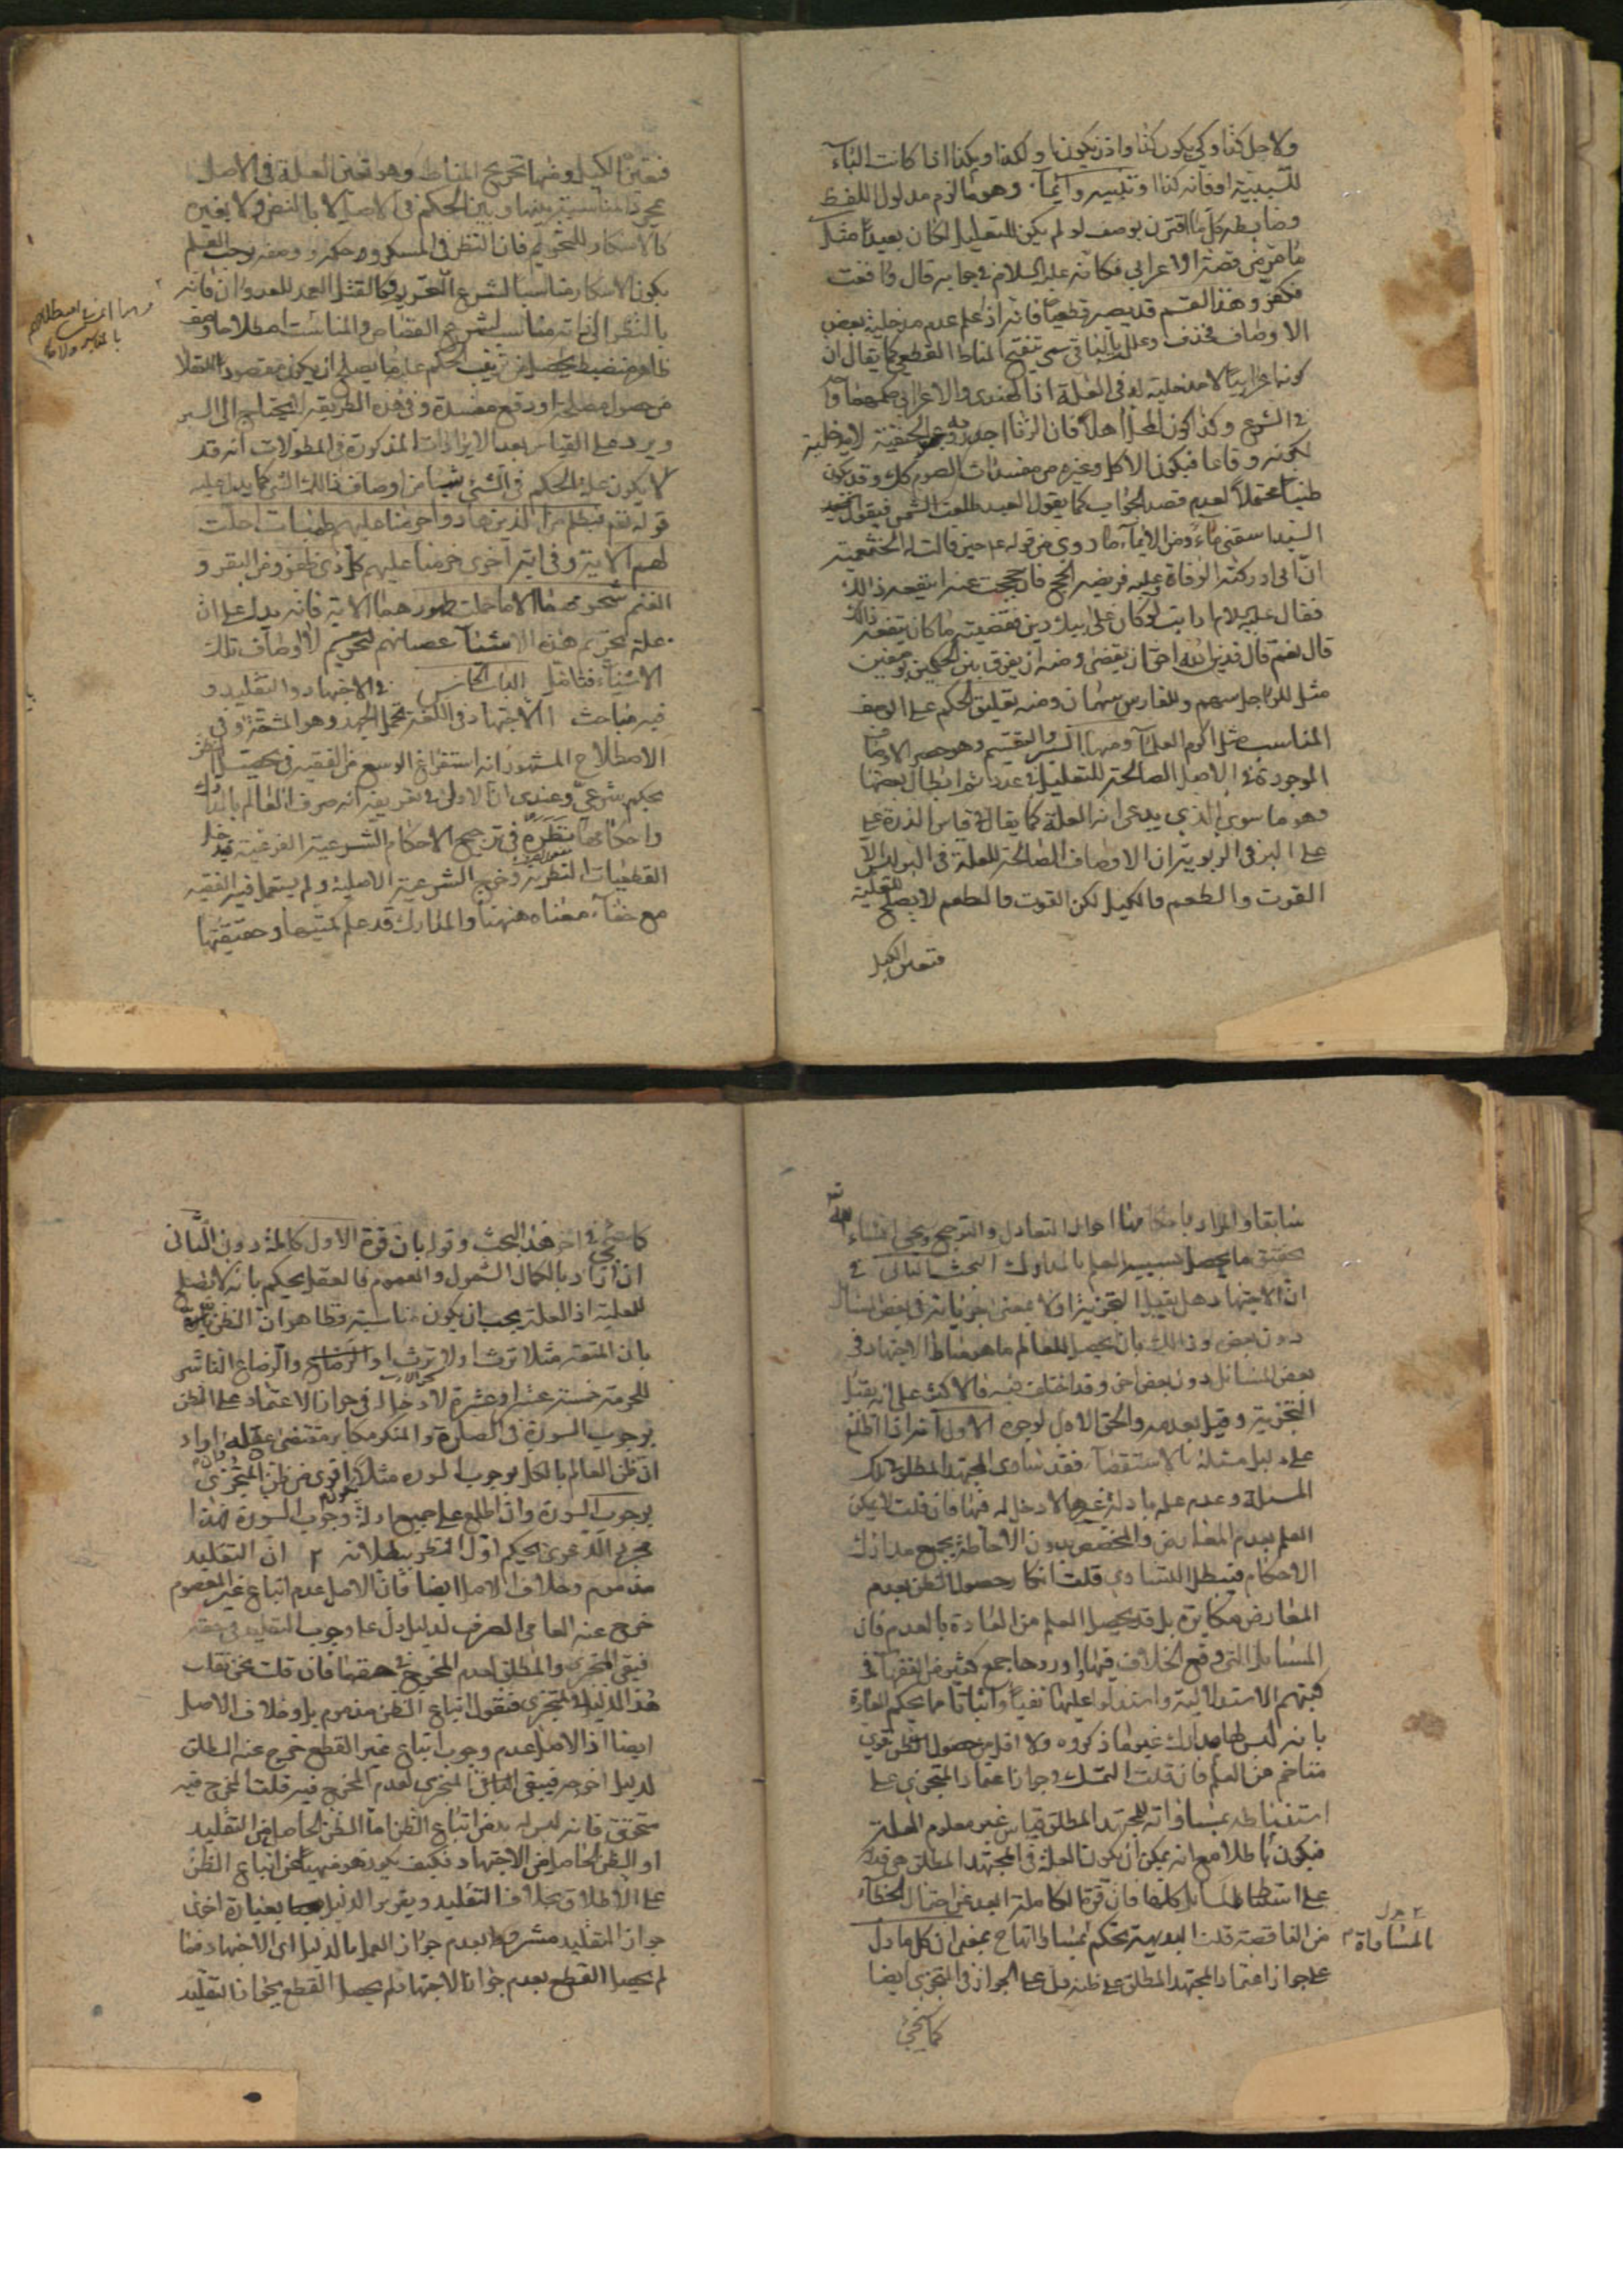 ولاجل كذا وكي يكون كذا واذن يكون كذا ولكذا وبكذا اذا كانت الباء
للسببية او فانه كذا او تنبيه وايماء وهو ما لزم مدلول اللفظ
وضابطه كل ما اقترن بوصف لو لم يكن للتعليل لكان بعيدا مثل
ما مر من قصة الاعرابي فكانه عليه السلام في جوابه قال واقعت
فكفر وهذا القسم قد يصير قطعيا فانه اذا علم عدم مدخلية بعض
الاوصاف فحذف وعلل بالباقي سمي تنقيح المناط القطعي كما يقال ان
كونه اعرابيا لا مدخلية له في العلة اذ الهندي والاعرابي حكمهما واحد
في الشرع وكذا كون المحل اهلا فان الزنا اجدر به وعن الحنفية لا مدخلية
لكونه وقاعا فيكون الاكل وغيره من مفسدات الصوم كذلك وقد يكون
ظنيا محتملا لعدم قصد الجواب كما يقول العبد طلعت الشمس فيقول
السيد اسقني ماء ومن الايماء ما روي من قوله ع حين قالت له الخثعمية
ان ابي ادركته الوفاة وعليه فريضة الحج فان حججت عنه اينفعه ذلك
فقال عليه السلام ارايت لو كان على ابيك دين فقضيته ما كان ينفعه ذلك
قال نعم قال فدين الله احق ان يقضى ومنه ان يفرق بين الحكمين بوصفين
مثل للراجل سهم وللفارس سهمان ومنه تعليق الحكم على الوصف
المناسب مثل اكرم العلماء ومنها السبر والتقسيم وهو حصر الاوصاف
الموجودة في الاصل الصالحة للتعليل في عدد ثم ابطال بعضها
وهو ما سوى الذي يدعى انه العلة كما يقال في قياس الذرة على
على البر في الربوية ان الاوصاف الصالحة للعلة في البر ليس الا
القوت والطعم والكيل لكن القوت والطعم لا يصلح للعلية
فتعين الكيل
فتعين الكيل ومنها تخريج المناط وهو تعين العلة في الاصل
بمجرد المناسبة بينها وبين الحكم في الاصل لا بالنص ولا بغيره
كالاسكار للتحريم فان النظر في المسكر وحكمه ووصفه يوجب العلم
بكون الاسكار مناسبا لشرع التحريم وكالقتل العمد العدوان فانه
بالنظر الى ذاته مناسب لشرع القصاص والمناسب اصطلاحا وصف
ظاهر منضبط يحصل من ترتيب الحكم عليه ما يصلح ان يكون مقصودا للعقلاء
من حصول مصلحة او دفع مفسدة وفي هذه الطريقة لا يحتاج الى السبر
ويرد على القياس بعد الايرادات المذكورة في المطولات انه قد
لا يكون علة الحكم في الشئ شيئا من اوصاف ذلك الشئ كما يدل عليه
قوله تعم فبظلم من الذين هادوا حرمنا عليهم طيبات احلت
لهم الاية وفي اية اخرى حرمنا عليهم كل ذي ظفر ومن البقر و
الغنم شحومهما الا ما حملت ظهورهما الاية فانه يدل على ان
علة تحريم هذه الاشياء عصيانهم لتحريم لا اوصاف تلك
الاشياء فتامل الباب الخامس في الاجتهاد والتقليد و
فيه مباحث الاجتهاد في اللغة تحمل الجهد وهو المشقة وفي
الاصطلاح المشهور انه استفراغ الوسع من الفقيه في تحصيل الظن
بحكم شرعي وعندي ان الاولى في تعريفه انه صرف العالم بالمدارك
واحكامها نظره في ترجيح الاحكام الشرعية الفرعية فيدخل
القطعيات النظرية وخرج الشرعية الاصلية ولم يستعمل فيه الفقيه
مع خفاء معناه ههنا والمدارك قد علم كميتها وحقيقتها
سابقا والمراد باحكامها احوال التعادل والترجيح ويجئ انشاء الله
تحقيق ما يحصل بسببه العلم بالمدارك البحث الثاني في
ان الاجتهاد هل يقبل التجزية او لا بمعنى جريانه في بعض المسائل
دون بعض وذلك بان يحصل للعالم ما هو مناط الاجتهاد في
بعض المسائل دون بعض اخر وقد اختلف فيه فالاكثر على انه يقبل
التجزية وقيل بعدمه والحق الاول لوجوه الاول انه اذا اطلع
على دليل مسئلة بالاستقصاء فقد ساوى المجتهد المطلق في تلك
المسئلة وعدم علمه بادلة غيرها لا دخل له فيها فان قلت لا يمكن
العلم بعدم المعارض والمخصص بدون الاحاطة بجميع مدارك
الاحكام فيبطل التساوي قلت انكار حصول الظن بعدم
المعارض مكابرة بل قد يحصل العلم من العادة بالعدم فان
المسائل التي وقع الخلاف فيها اوردها جمع كثير من الفقهاء في
كتبهم الاستدلالية واستدلوا عليها نفيا واثباتا مما يحكم العادة
بانه ليس لها مدارك غير ما ذكروه ولا اقل من حصول ظن قوي
متاخم من العلم فان قلت التمسك في جواز اعتماد المتجزي على
استنباطه بمساواته للمجتهد المطلق قياس غير معلوم العلة
فيكون باطلا مع انه يمكن ان يكون العلة في المجتهد المطلق هي قدرته
على استنباط المسائل كلها فان قوة الكاملة ابعد عن احتمال الخطاء
من الناقصة قلت البديهة تحكم بمساواتها بمعنى ان كل ما دل
بالمساواة
على جواز اعتماد المجتهد المطلق على ظنه دل على الجواز في المتجزي ايضا
كما يجئ
كما يجئ في اخر هذا البحث وقوله بان قوة الاول كاملة دون الثاني
ان اراد بالكمال الشمول والعموم فالعقل يحكم بانه لا يصلح
للعلية اذ العلة يجب ان يكون مناسبة وظاهر ان الظن
بان المتعة مثلا ترث او لا ترث او الرضاع الناشر
للحرمة خمسة عشر او عشرة لا دخل له في جواز الاعتماد على الظن
بوجوب السورة في الصلوة والمنكر مكابر مقتضى عقله وان اراد
ان ظن العالم بالكل بوجوب السورة مثلا اقوى من ظن المتجزي
بوجوب السورة وان اطلع على جميع ادلة وجوب السورة فهذا
مجرد الدعوى يحكم اول النظر ببطلانه ٢ ان التقليد
مذموم وخلاف الاصل ايضا فان الاصل عدم اتباع غير المعصوم
خرج عنه العامي الصرف لدليل دل على وجوب التقليد في حقه
فبقي المتجزي والمطلق لعدم المخرج في حقهما فان قلت نحن نقلب
هذا الدليل في المتجزي فنقول اتباع الظن مذموم بل وخلاف الاصل
ايضا اذ الاصل عدم وجوب اتباع غير القطع خرج عنه المطلق
لدليل اخرجه فبقي المتجزي لعدم المخرج فيه قلت المخرج فيه
متحقق فانه ليس له بد من اتباع الظن اما الظن الحاصل من التقليد
او الظن الحاصل من الاجتهاد فكيف يكون هو منهيا عن اتباع الظن
على الاطلاق بخلاف التقليد ويقرر الدليل بعبارة اخرى
جواز التقليد مشروط بعدم جواز العمل بالدليل اي الاجتهاد فما
لم يحصل القطع بعدم جواز الاجتهاد لم يحصل القطع بجواز التقليد